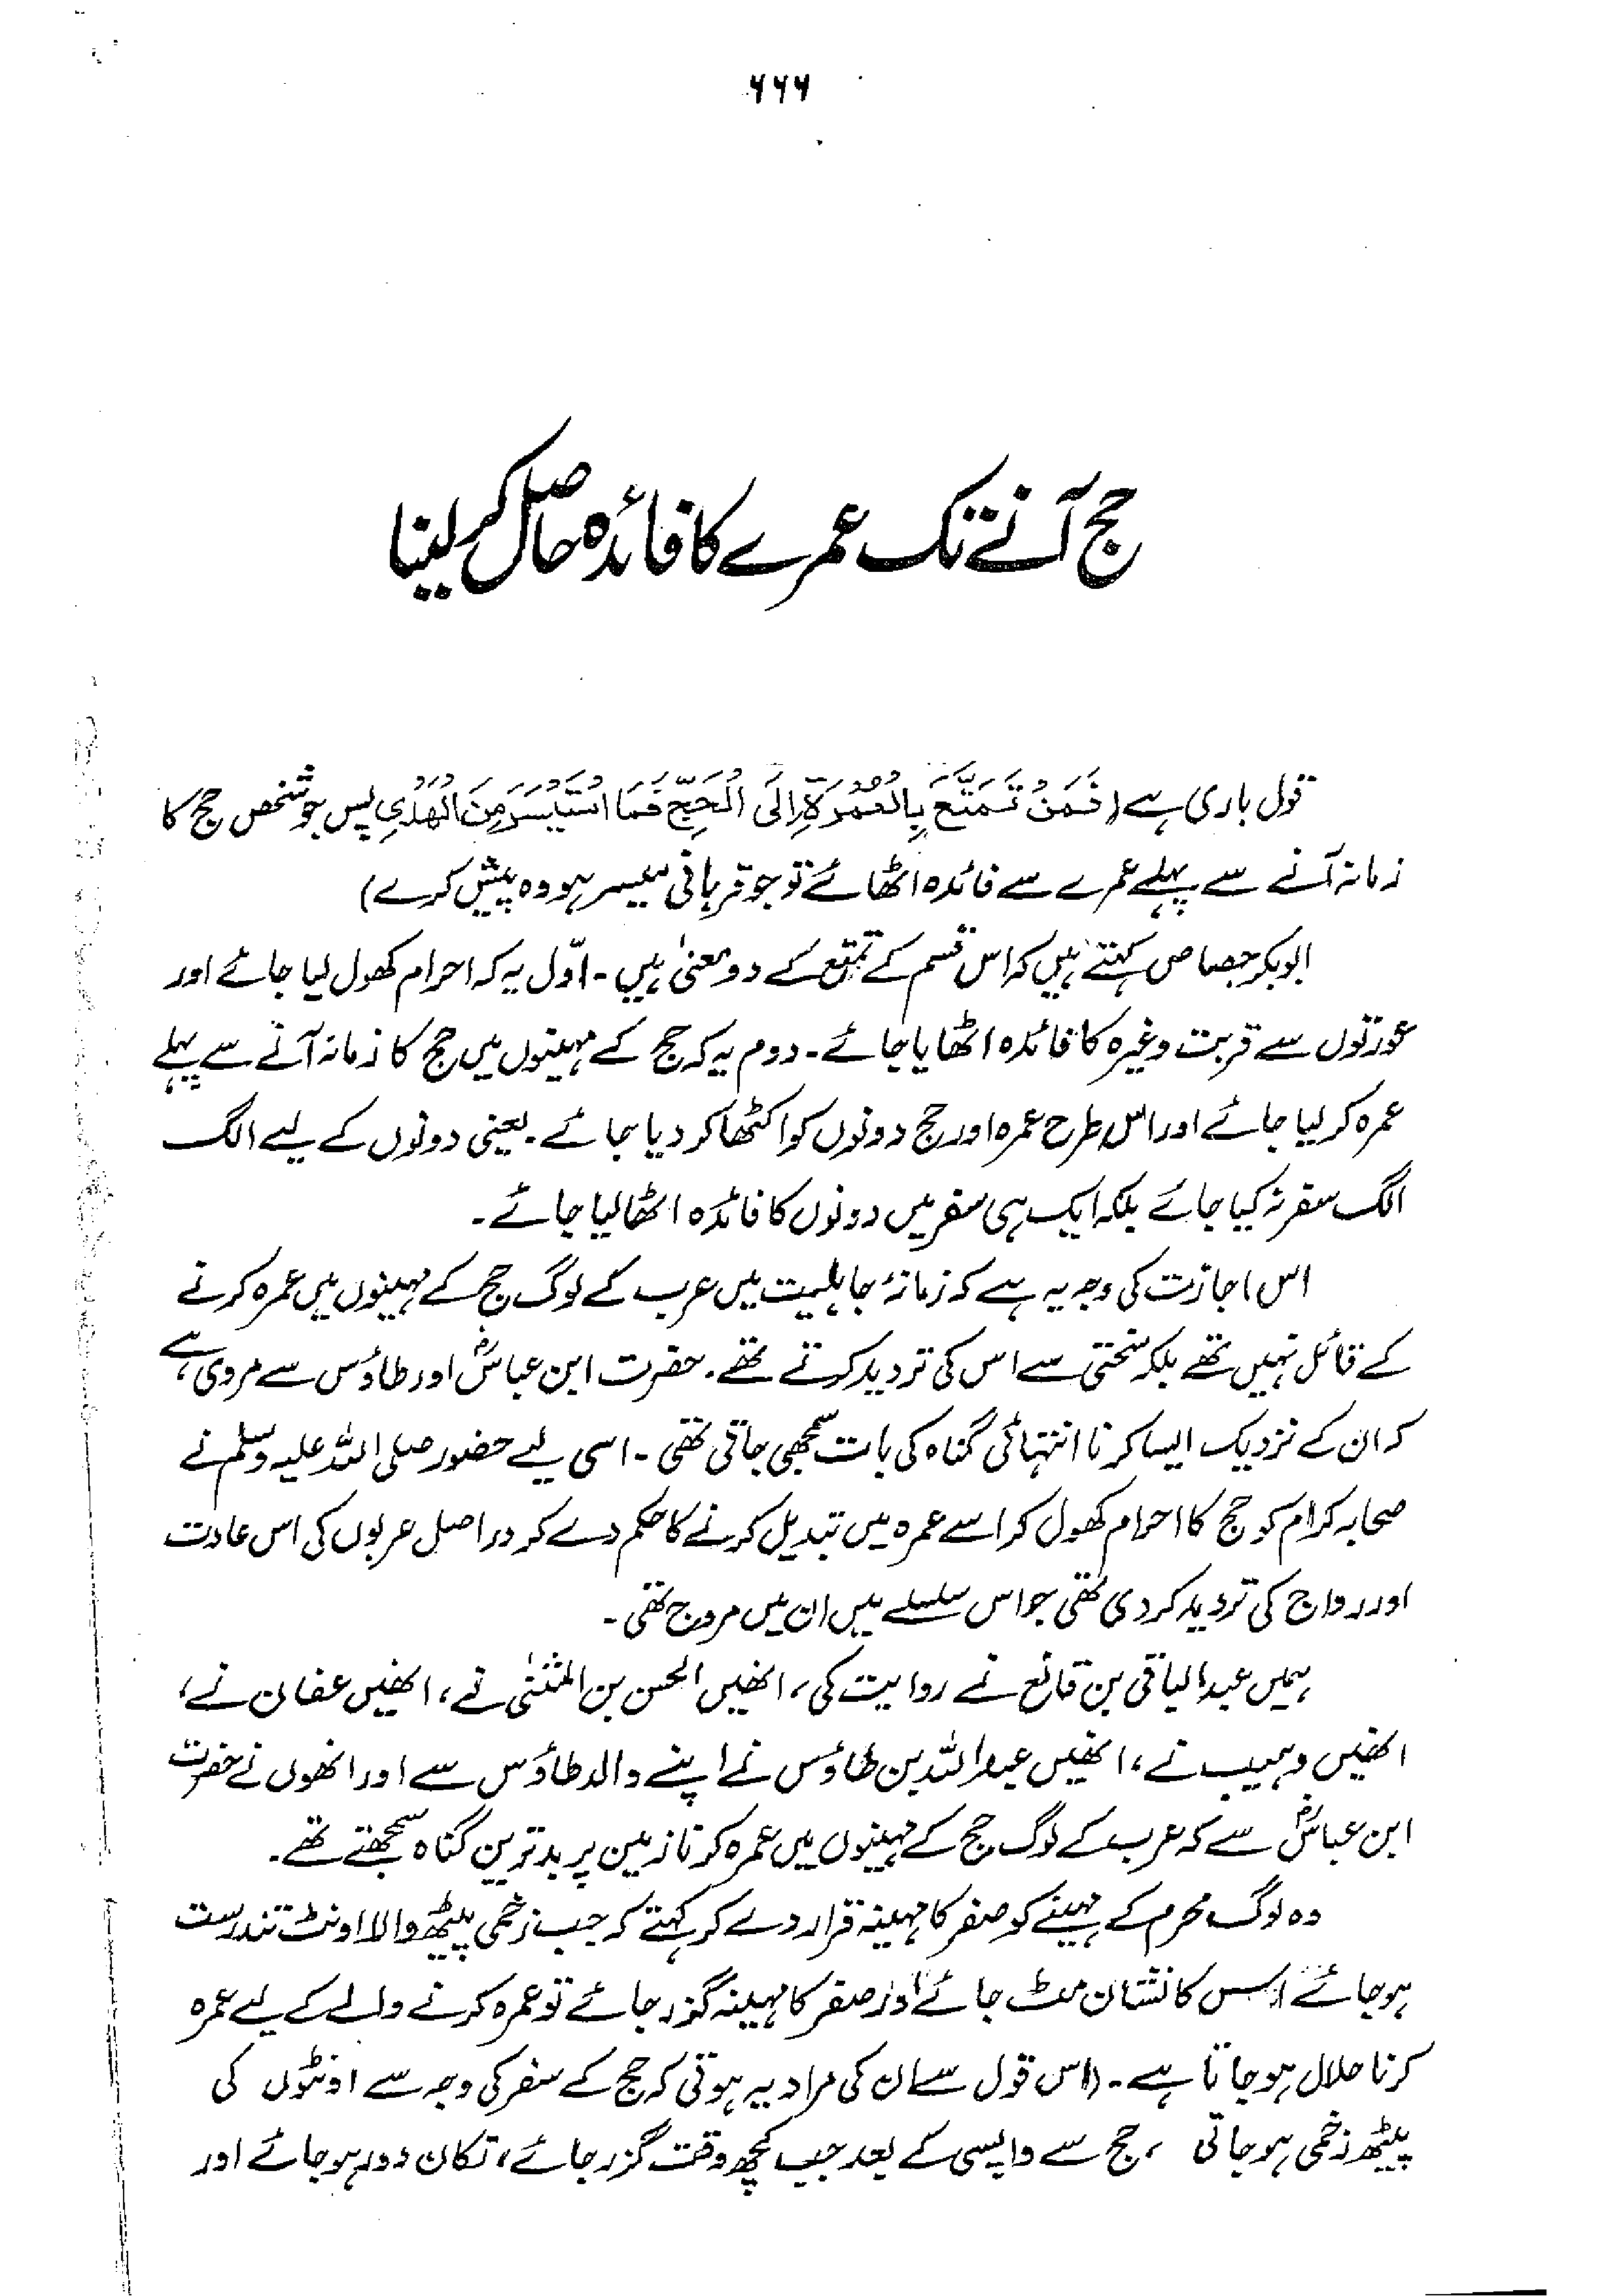 ۶۶۶
حج آنے تک عمرے کا فائدہ حاصل کر لینا
قول باری ہے (فَمَنْ تَمَتَّعَ بِالْعُمْرَةِ اِلَى الْحَجِّ فَمَا اسْتَيْسَرَ مِنَ الْهَدْيِ پس جو شخص حج کا
زمانہ آنے سے پہلے عمرے سے فائدہ اٹھائے تو جو قربانی میسر ہو وہ پیش کرے)
ابوبکر جصاص کہتے ہیں کہ اس قسم کے تمتع کے دو معنیٰ ہیں۔ اوّل یہ کہ احرام کھول لیا جائے اور
عورتوں سے قربت وغیرہ کا فائدہ اٹھایا جائے۔ دوم یہ کہ حج کے مہینوں میں حج کا زمانہ آنے سے پہلے
عمرہ کر لیا جائے اور اس طرح عمرہ اور حج دونوں کو اکٹھا کر دیا جائے۔ یعنی دونوں کے لیے الگ
الگ سفر نہ کیا جائے بلکہ ایک ہی سفر میں دونوں کا فائدہ اٹھا لیا جائے۔
اس اجازت کی وجہ یہ ہے کہ زمانۂ جاہلیت میں عرب کے لوگ حج کے مہینوں میں عمرہ کرنے
کے قائل نہیں تھے بلکہ سختی سے اس کی تردید کرتے تھے۔ حضرت ابن عباسؓ اور طاؤس سے مروی ہے
کہ ان کے نزدیک ایسا کرنا انتہائی گناہ کی بات سمجھی جاتی تھی۔ اسی لیے حضور صلی اللہ علیہ وسلم نے
صحابہ کرام کو حج کا احرام کھول کر اسے عمرہ میں تبدیل کرنے کا حکم دے کر دراصل عربوں کی اس عادت
اور رواج کی تردید کر دی تھی جو اس سلسلے میں ان میں مروج تھی۔
ہمیں عبدالباقی بن قانع نے روایت کی، انھیں الحسن بن المثنیٰ نے، انھیں عفان نے،
انھیں وہیب نے، انھیں عبداللہ بن طاؤس نے اپنے والد طاؤس سے اور انھوں نے حضرت
ابن عباسؓ سے کہ عرب کے لوگ حج کے مہینوں میں عمرہ کرنا زمین پر بدترین گناہ سمجھتے تھے۔
وہ لوگ محرم کے مہینے کو صفر کا مہینہ قرار دے کر کہتے کہ جب زخمی پیٹھ والا اونٹ تندرست
ہو جائے اس کا نشان مٹ جائے اور صفر کا مہینہ گزر جائے تو عمرہ کرنے والے کے لیے عمرہ
کرنا حلال ہو جاتا ہے۔ (اس قول سے ان کی مراد یہ ہوتی کہ حج کے سفر کی وجہ سے اونٹوں کی
پیٹھ زخمی ہو جاتی ، حج سے واپسی کے بعد جب کچھ وقت گزر جائے، تکان دور ہو جائے اور